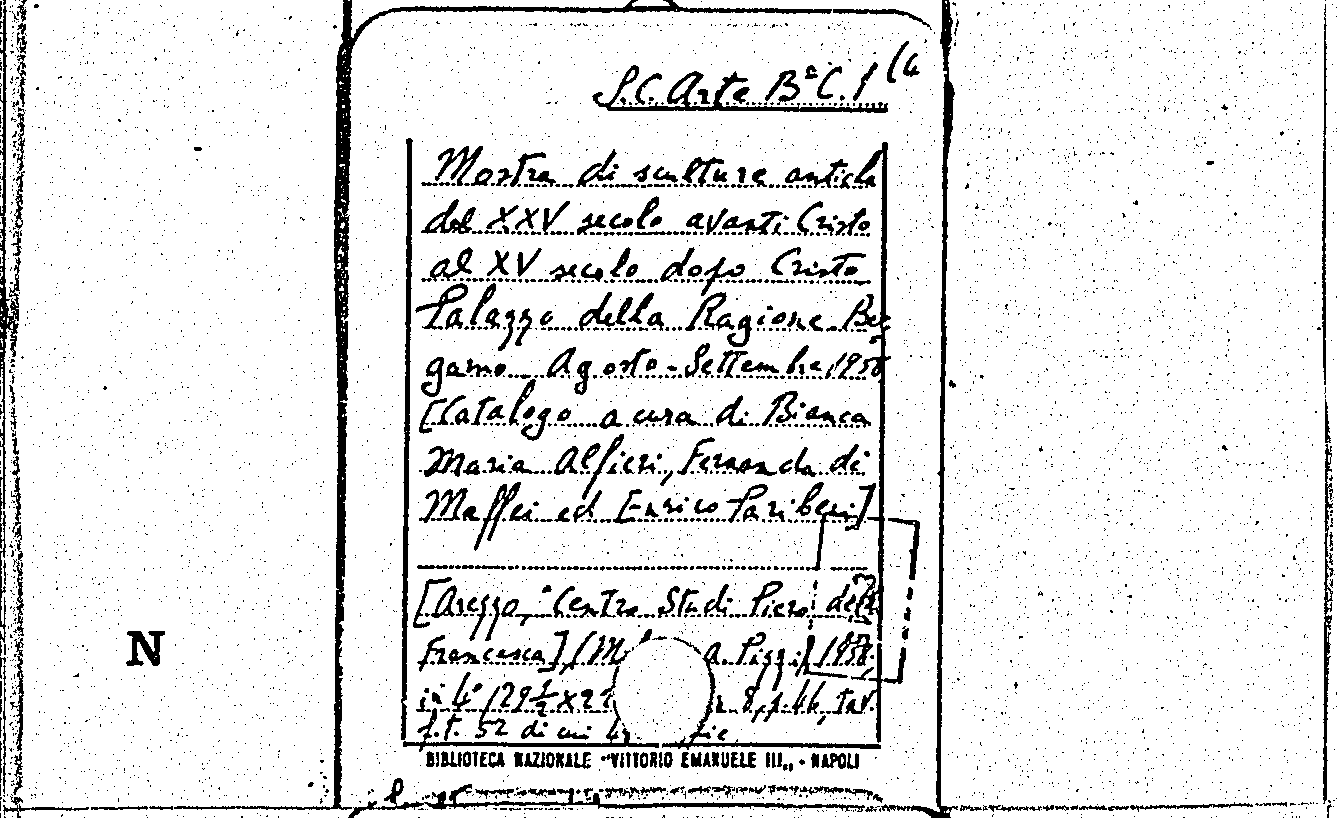 S.C. Arte B° C. 1 (4
Mostra di sculture antiche
dal XXV secolo avanti Cristo
al XV secolo dopo Cristo
Palazzo della Ragione. Ber
gamo. Agosto-Settembre, 1958
[Catalogo a cura di Bianca
Maria Alfieri, Fernanda di
Maffei ed Enrico Pariberi]
[Arezzo, Centro Studi Piero della
Francesca] (M a. Pizzi) 1958,
in 4° (29½ x 8, p. 46, tav.
f.t. 52 di cui
N
BIBLIOTECA NAZIONALE "VITTORIO EMANUELE III„ - NAPOLI